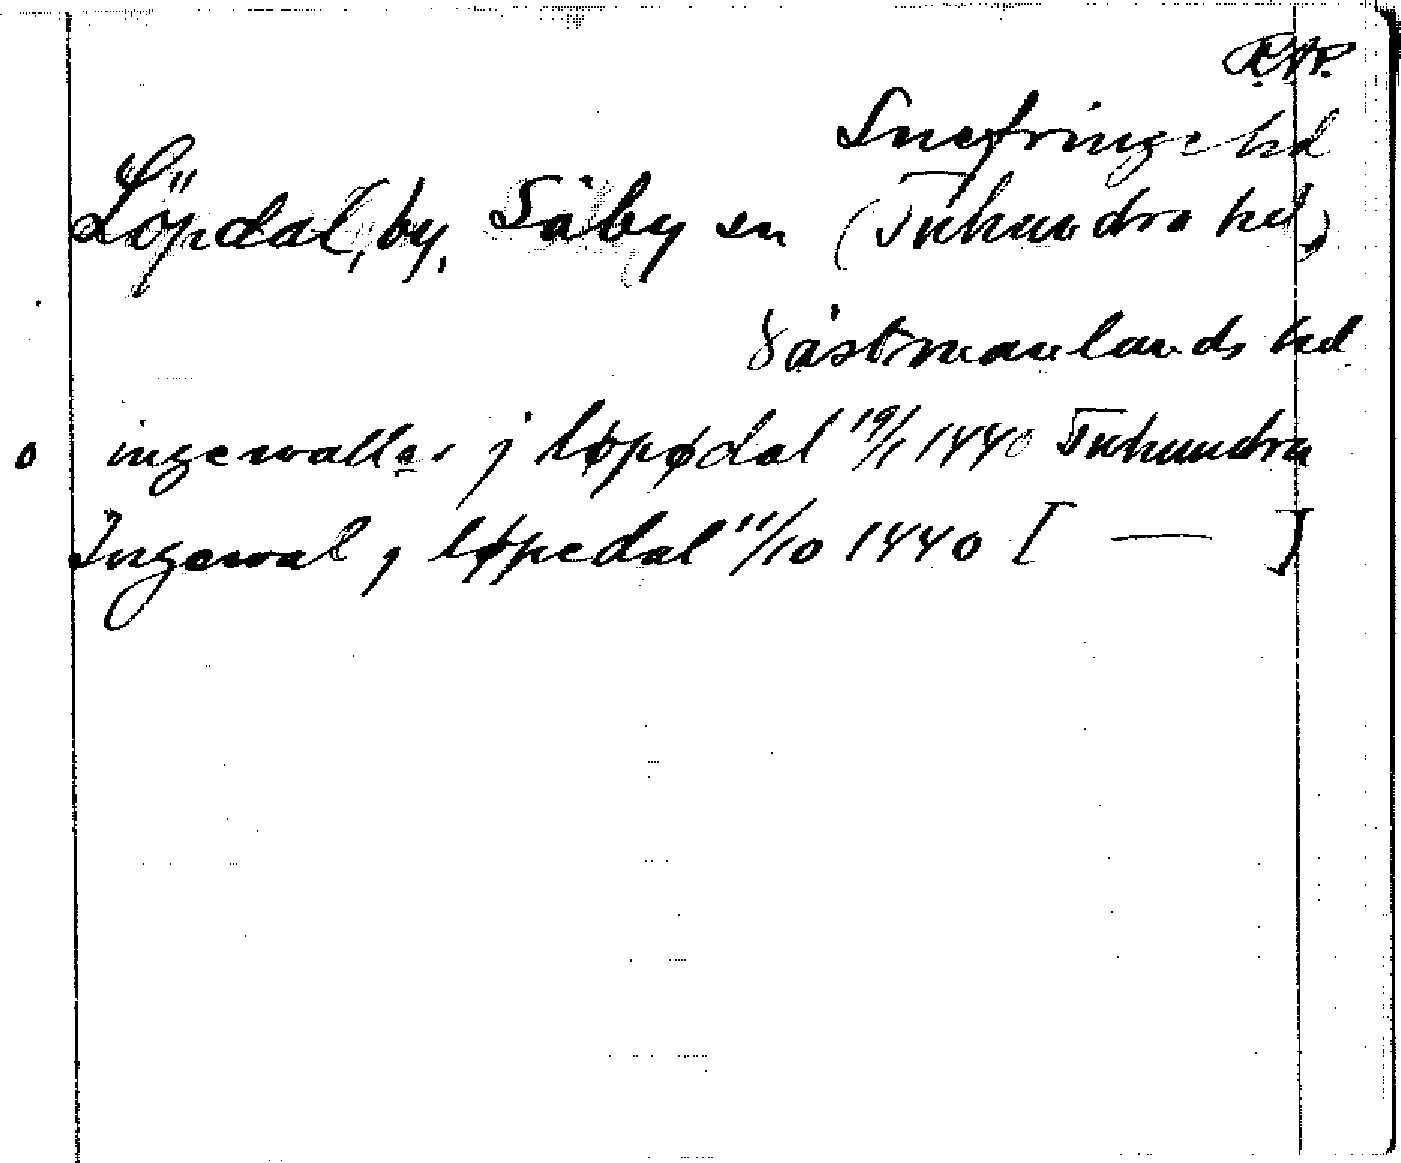 R.A.P.
Snefringe hd
Löpdal, by, Säby sn (Tuhundra hd)
Västmanlands hd
o ingewallar j løpødal 19/1 1440 Tuhundra
Ingewal j løpedal 11/10 1440 [ — ]